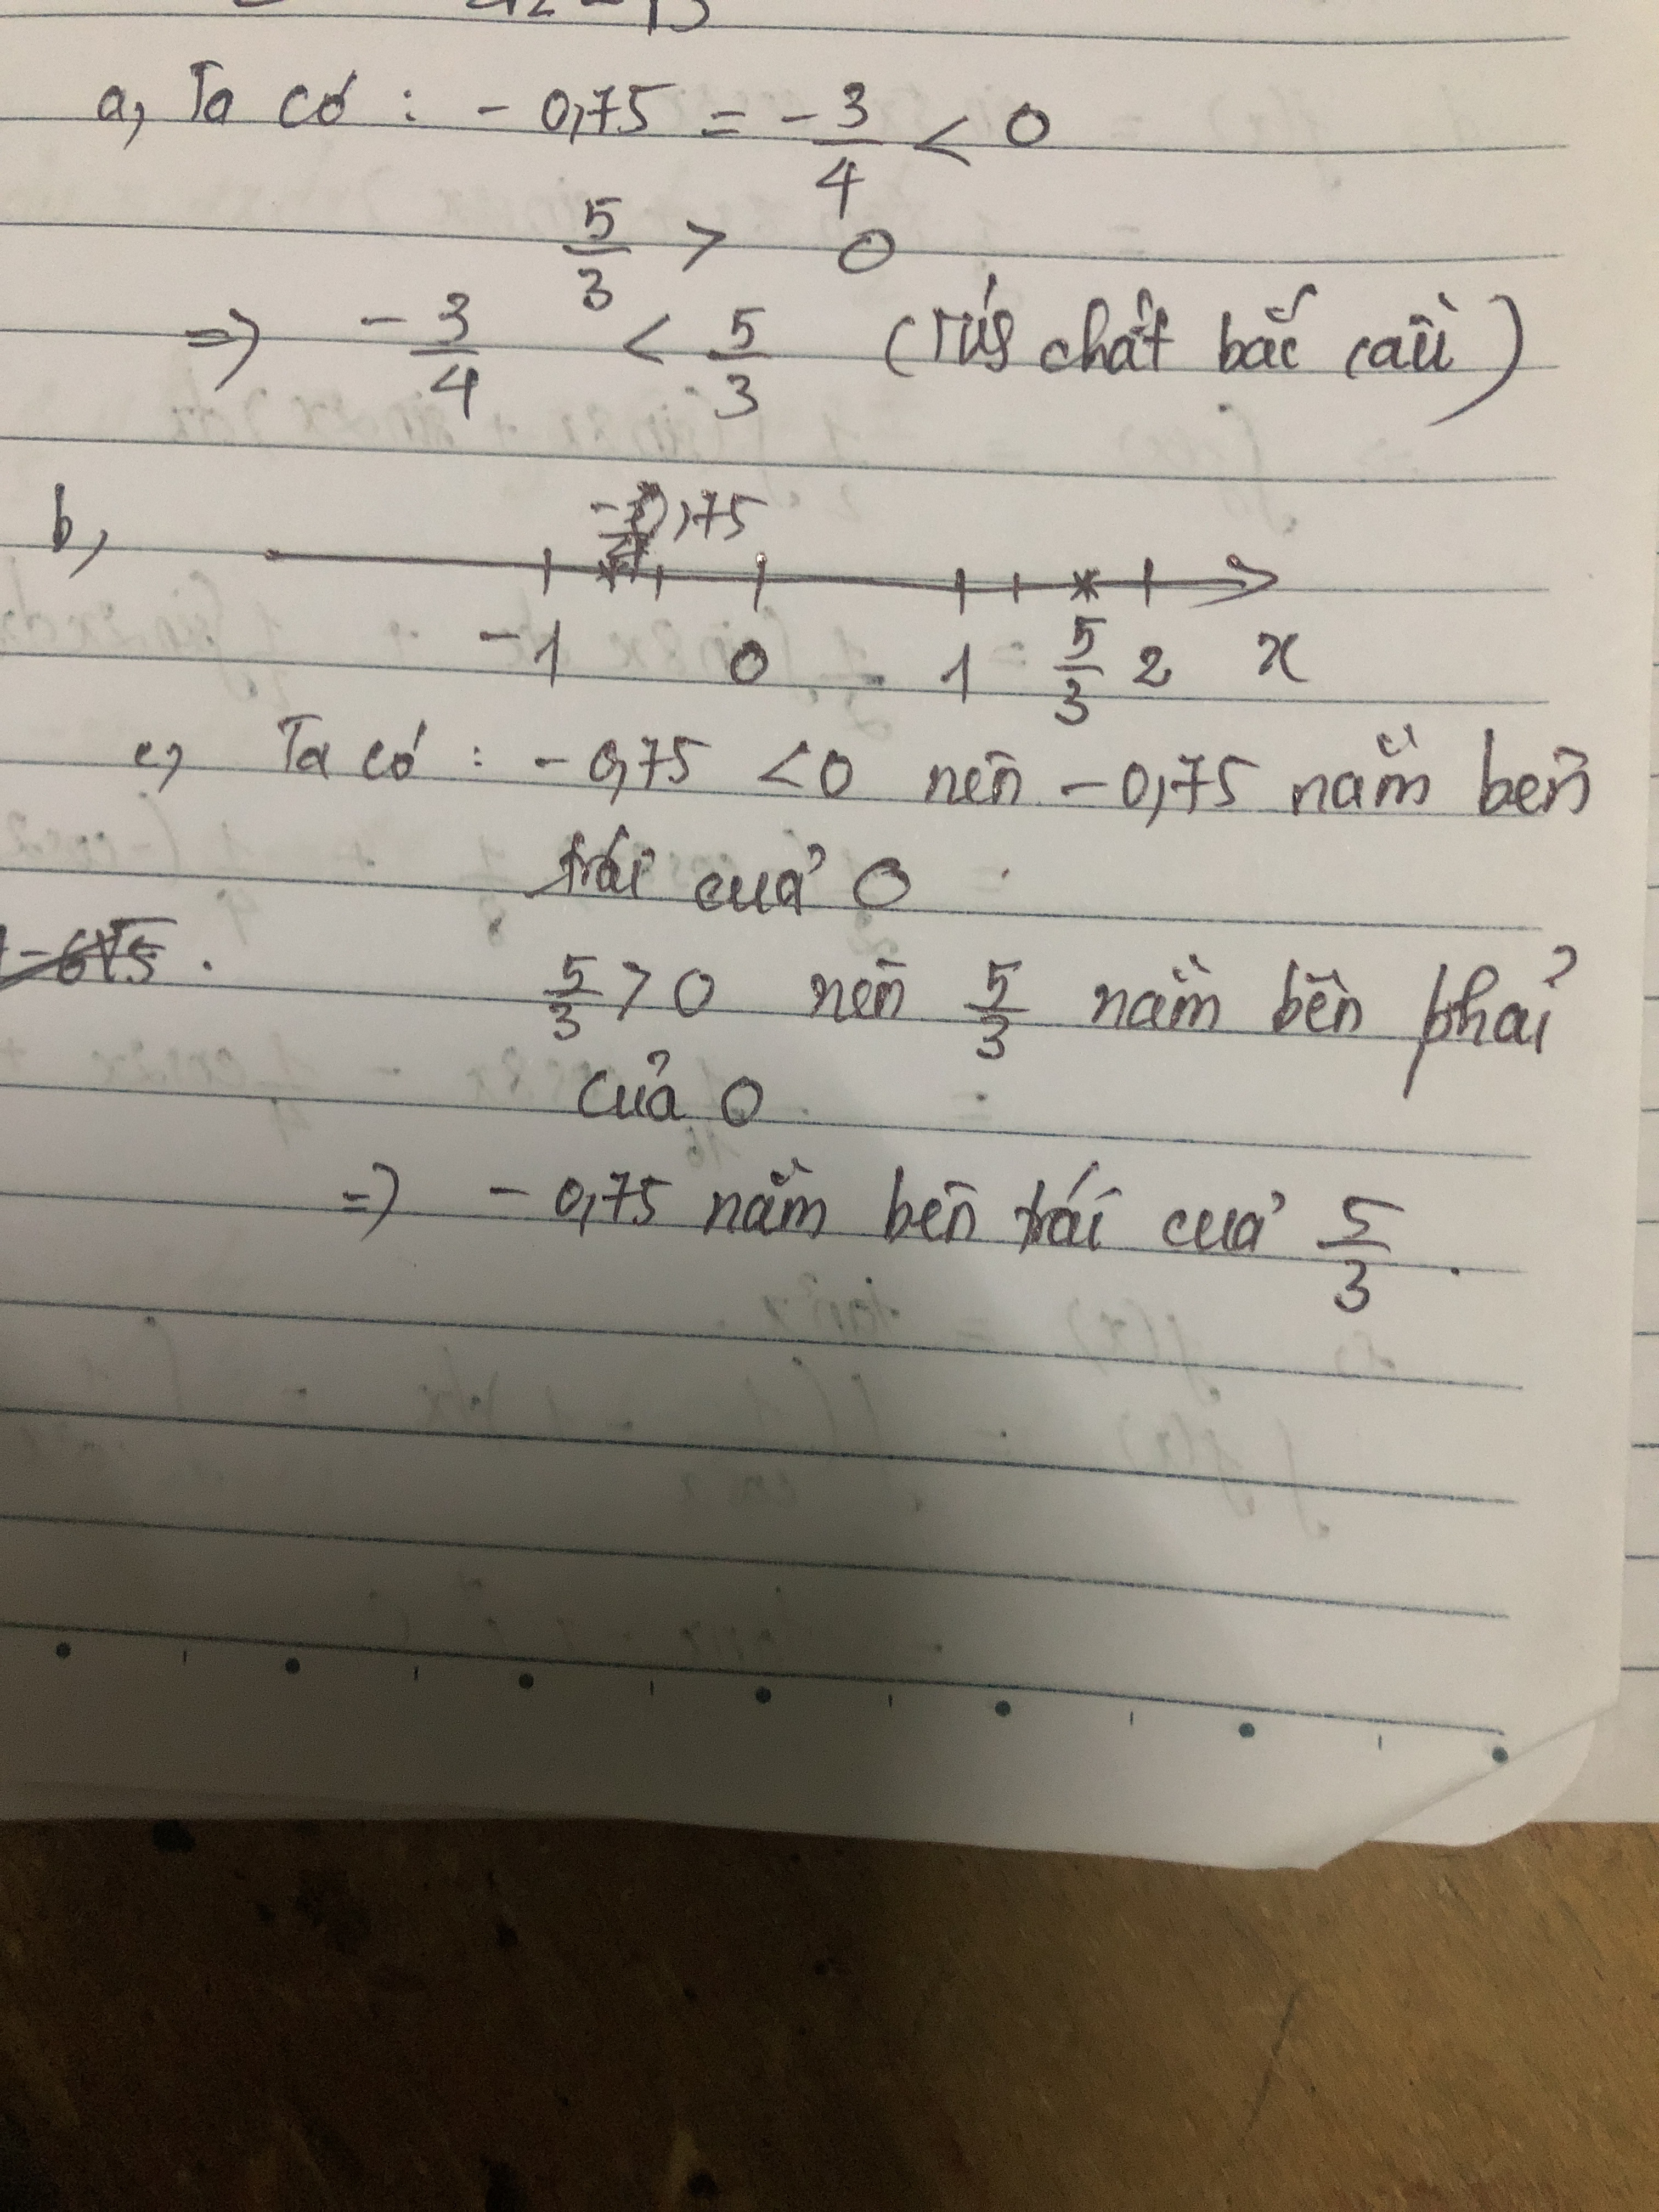 a, Ta có : - 0,75 = - 3/4 < 0
5/3 > 0
=> - 3/4 < 5/3 ( chất bắc cầu )
b, ,75
-1 0 1 5/3 2 x
c, Ta có : - 0,75 < 0 nên - 0,75 nằm bên
trái của 0
5/3 > 0 nên 5/3 nằm bên phải
của 0
=> - 0,75 nằm bên trái của 5/3 .